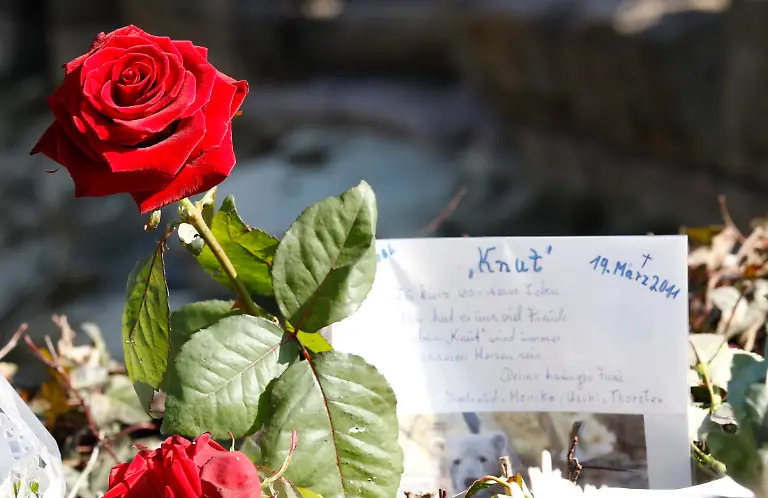 „Knut"
19. März 2011
kurz war sein Leben
hat er uns viel Freude
„Knut" wird immer
Herzen sein
Deine
Monika, Uschi, Thorsten